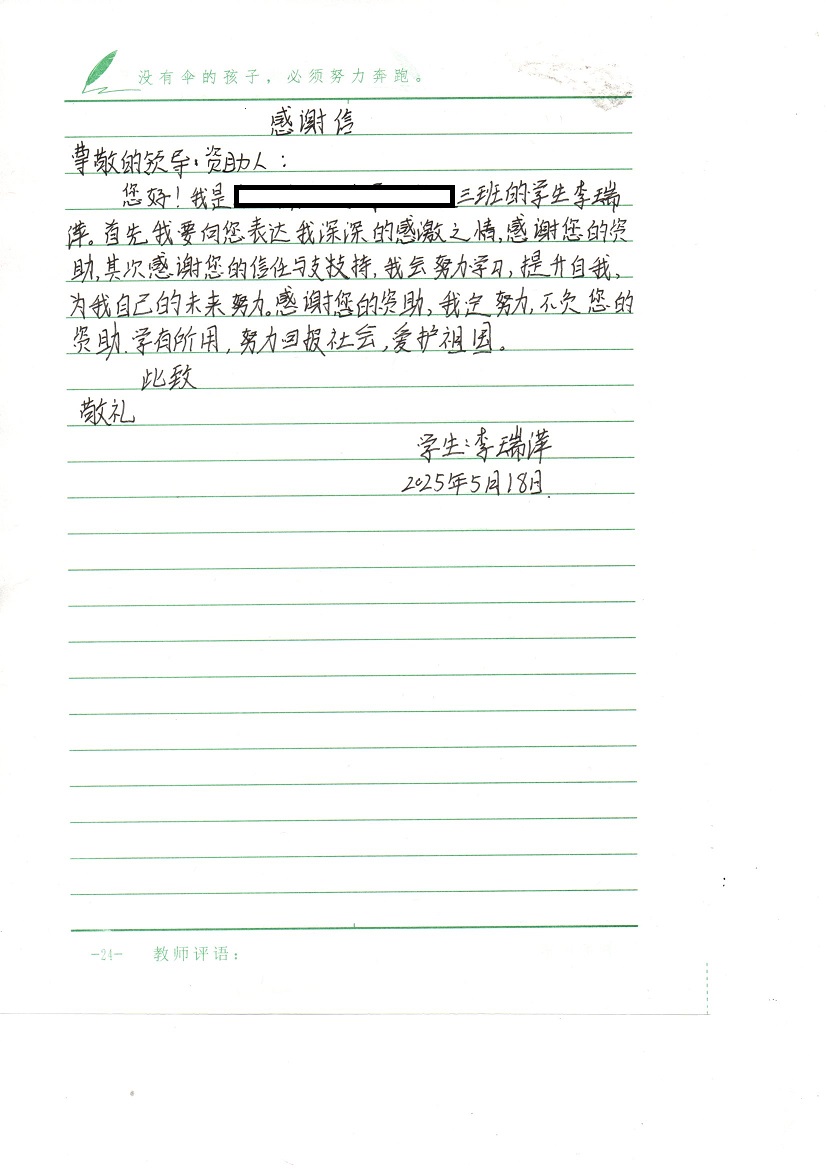 没有伞的孩子，必须努力奔跑。
感谢信
尊敬的领导、资助人：
您好！我是三班的学生李瑞
萍。首先我要向您表达我深深的感激之情,感谢您的资
助,其次感谢您的信任与支持，我会努力学习，提升自我、
为我自己的未来努力。感谢您的资助，我定努力，不负您的
资助.学有所用，努力回报社会，爱护祖国。
此致
敬礼
学生：李瑞萍
2025年5月18日.
-24- 教师评语：